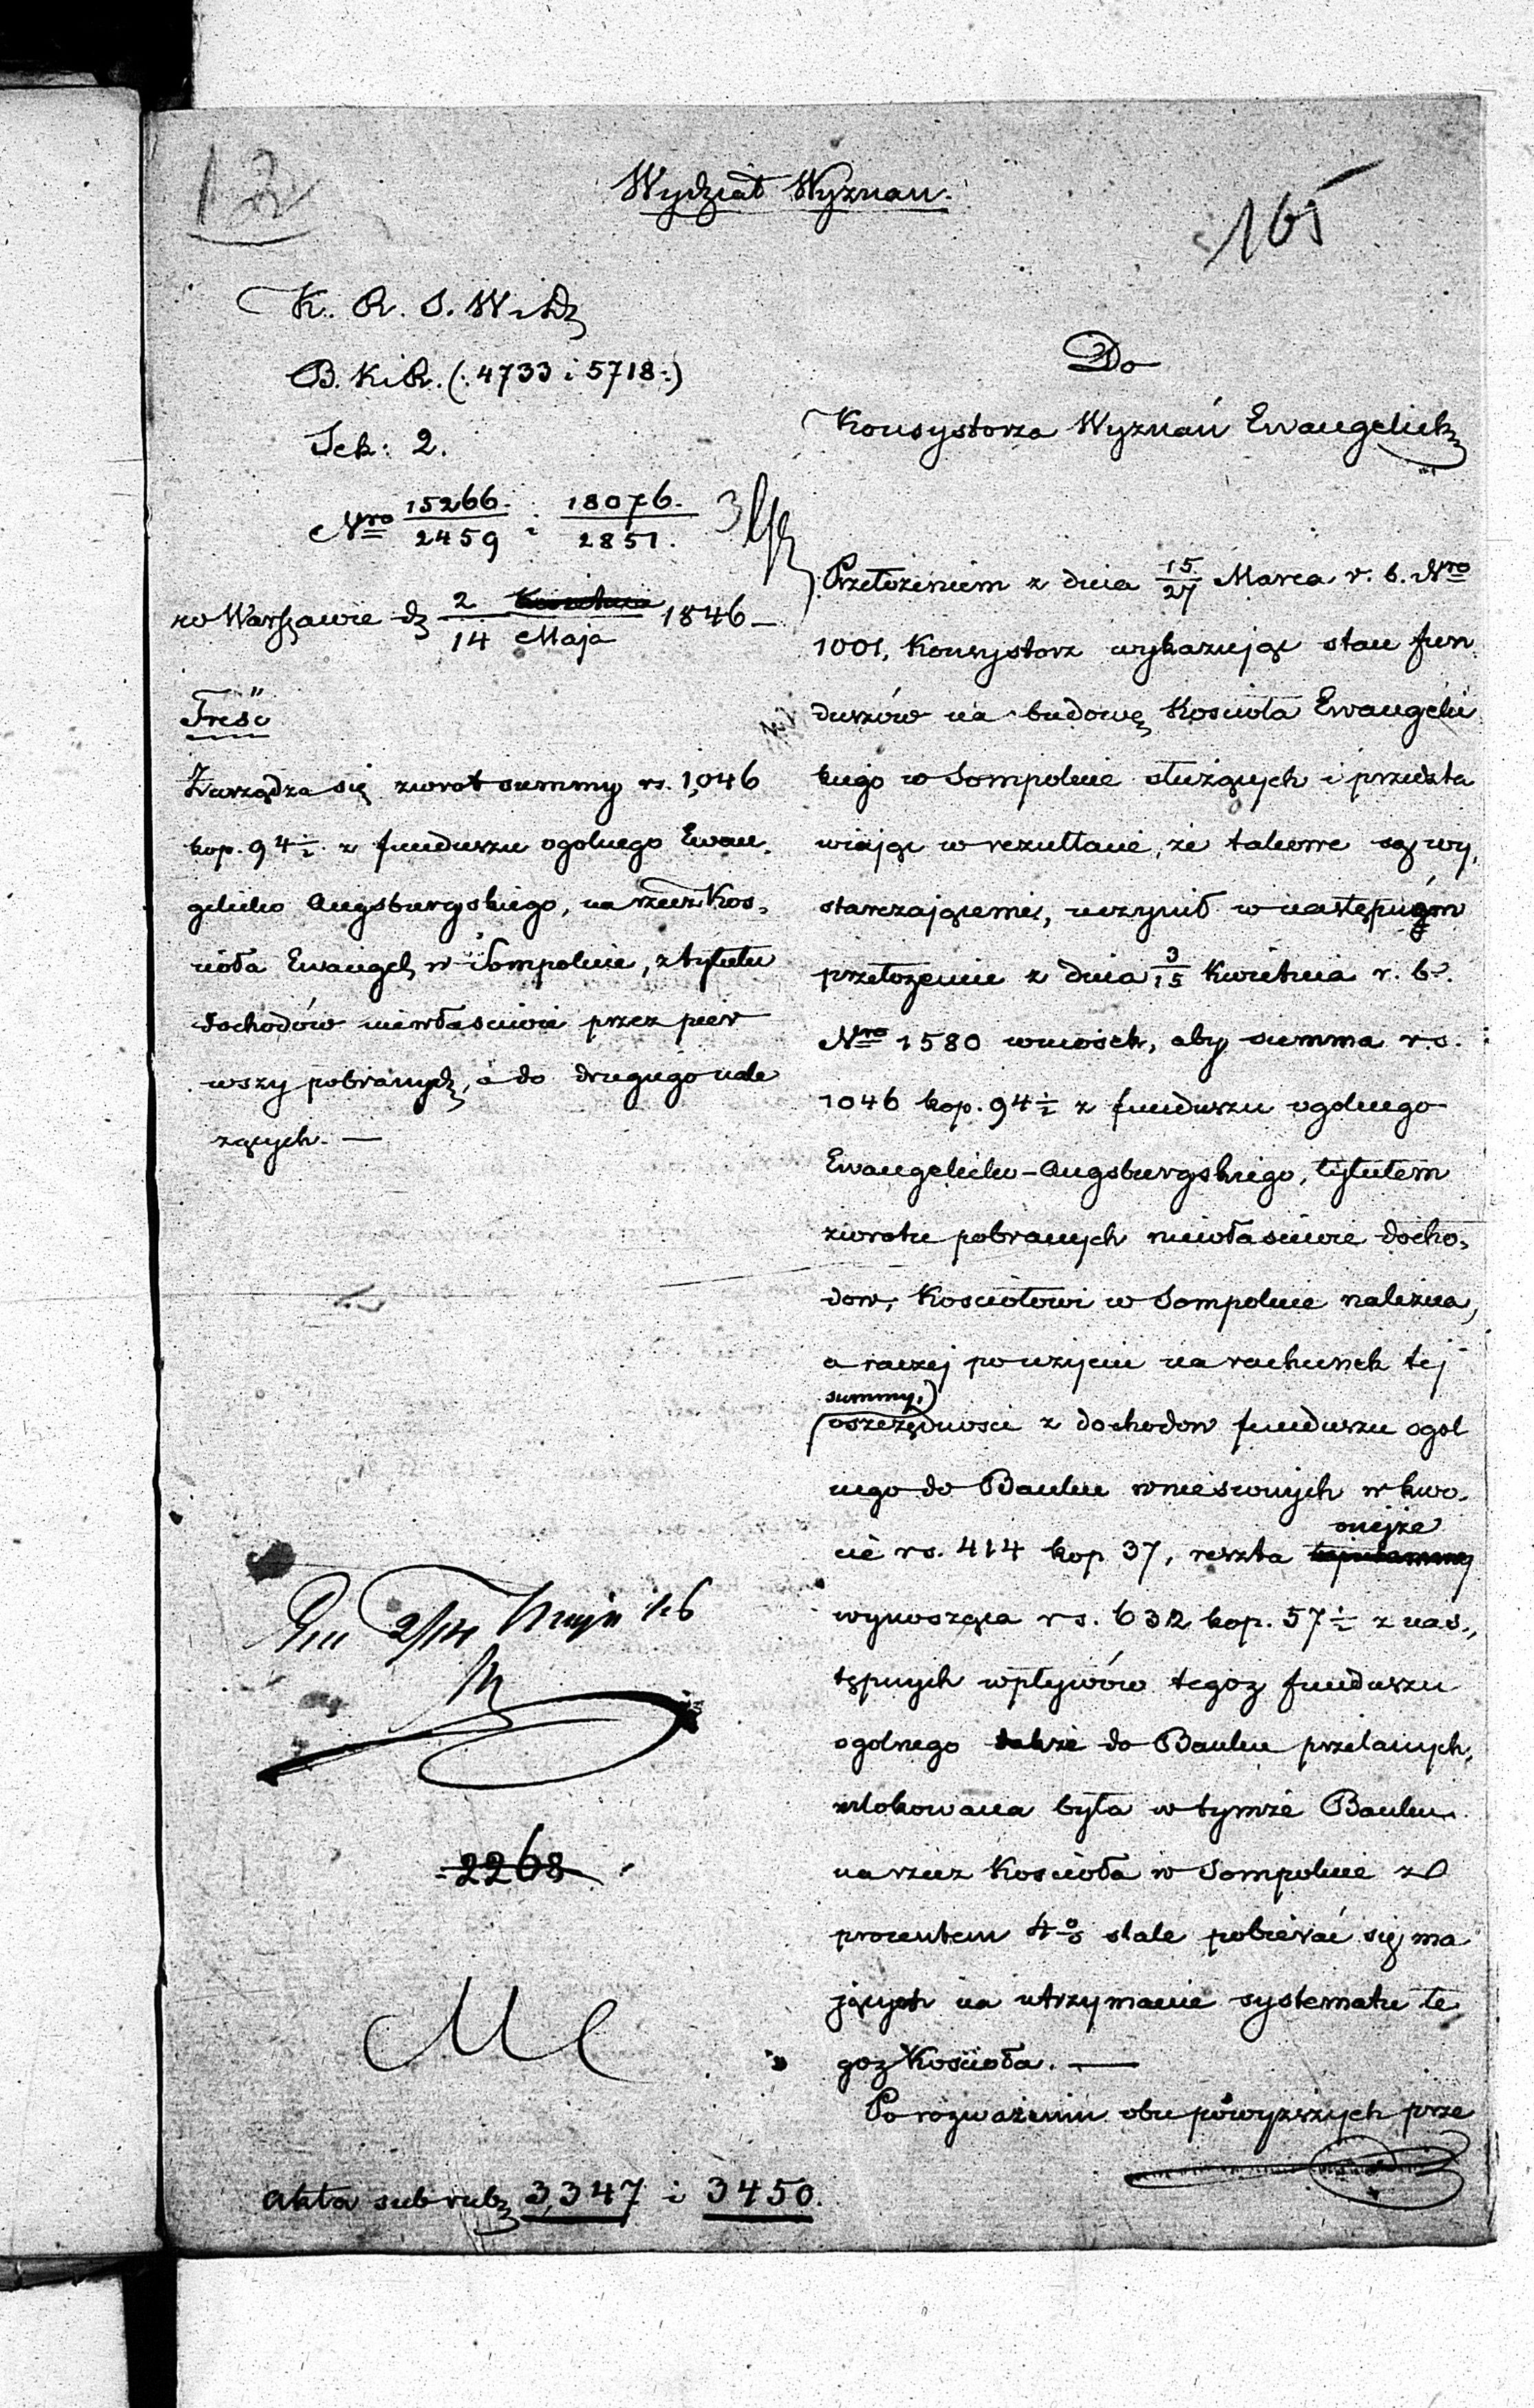 12
Wydział Wyznan.
165
K. R. S. W. i D.
B. K i R. (: 4733 i 5718 :)
Sek: 2.
Nro 15266/2459 i 18076/2851.
w Warszawie d 2 Kwietnia/14 Maja 1846 —
Treść
Zarządza się zwrot summy rs. 1,046
kop. 94½ z funduszu ogolnego Ewan,
gelicko Augsburgskiego, na rzecz Kos,
cioła Ewangel. w Sompolnie, z tytułu
dochodów niewłaściwie przez pier
wszy pobranych, a do drugiego nale
zących. —
Dn 2/14 Maja 46
2268
Akta sub rub 3,347 i 3450.
Do
Konsystorza Wyznań Ewangelick
Przełożeniem z dnia 15/27 Marca r. b. Nro
1001, Konsystorz wykazując stan fun
duszów na budowę Koscioła Ewangelic
kiego w Sompolnie służących i przedsta
wiając w rezultacie, że takowe są wy,
starczającemi, uczynił w następnym
przełożeniu z dnia 3/15 Kwietnia r. b.
Nro 1580 wniosek, aby summa rs.
1046 kop. 94½ z funduszu ogolnego
Ewangelicko-Augsburgskiego, tytułem
zwrotu pobranych niewłaściwie docho,
dow, Kosciołowi w Sompolnie należna,
a raczej po użyciu na rachunek tej
summy,
oszczędnosci z dochodow funduszu ogol
nego do Banku wniesionych w kwo,
cie rs. 414 kop 37, reszta onejże
wynosząca rs. 632 kop. 57½ z nas,
tępnych wpływów tegoz funduszu
ogolnego także do Banku przelanych,
ulokowana była w tymże Banku
na rzecz Kościoła w Sompolnie z
procentem 4% stale pobierać się ma
jących na utrzymanie systematu te
goz Kościoła. —
Po rozważeniu obu powyższych prze